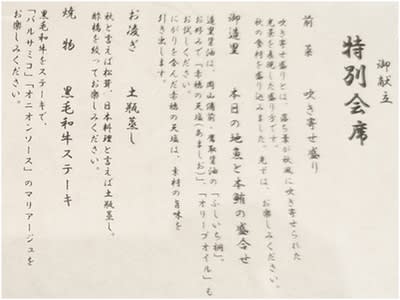 御献立
特別会席
前菜　吹き寄せ盛り
吹き寄せ盛りとは、落ち葉が秋風に吹き寄せられた
光景を表現した盛り方です。
秋の食材を盛り込みました。先ずは、お楽しみください。
御造里　本日の地魚と本鮪の盛合せ
造里醤油は、岡山備前・鷹取醤油の「ふじいち桐」、
お好みで「赤穂の天塩(あましお)」、「オリーブオイル」も
お試しください。
にがりを含んだ赤穂の天塩は、素材の旨味を
引き出します。
お凌ぎ　土瓶蒸し
秋と言えば松茸、日本料理と言えば土瓶蒸し。
酢橘を絞ってお楽しみください。
焼物　黒毛和牛ステーキ
黒毛和牛をステーキで、
「バルサミコ」「オニオンソース」のマリアージュを
お楽しみください。